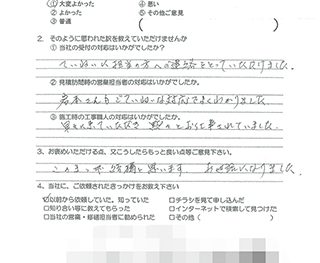 ①大変よかった ④悪い
②よかった ⑤その他ご意見
③普通
2. そのように思われた訳を教えていただけませんか
①当社の受付の対応はいかがでしたか?
ていねいに担当の方への連絡をとっていただけました。
②見積訪問時の営業担当者の対応はいかがでしたか?
さんもていねいな対応でよくわかりました
③施工時の工事職人の対応はいかがでしたか?
3、お褒めいただける点、又こうしたらもっと良い点等ご意見下さい。
このままで結構と思います。お世話になりました。
4、当社に、ご依頼されたきっかけをお教え下さい
☑以前から依頼していた。知っていた □チラシを見て申し込んだ
□知り合い等に教えてもらった □インターネットで検索して見つけた
□当社の営業・修繕担当者に勧められた □その他(